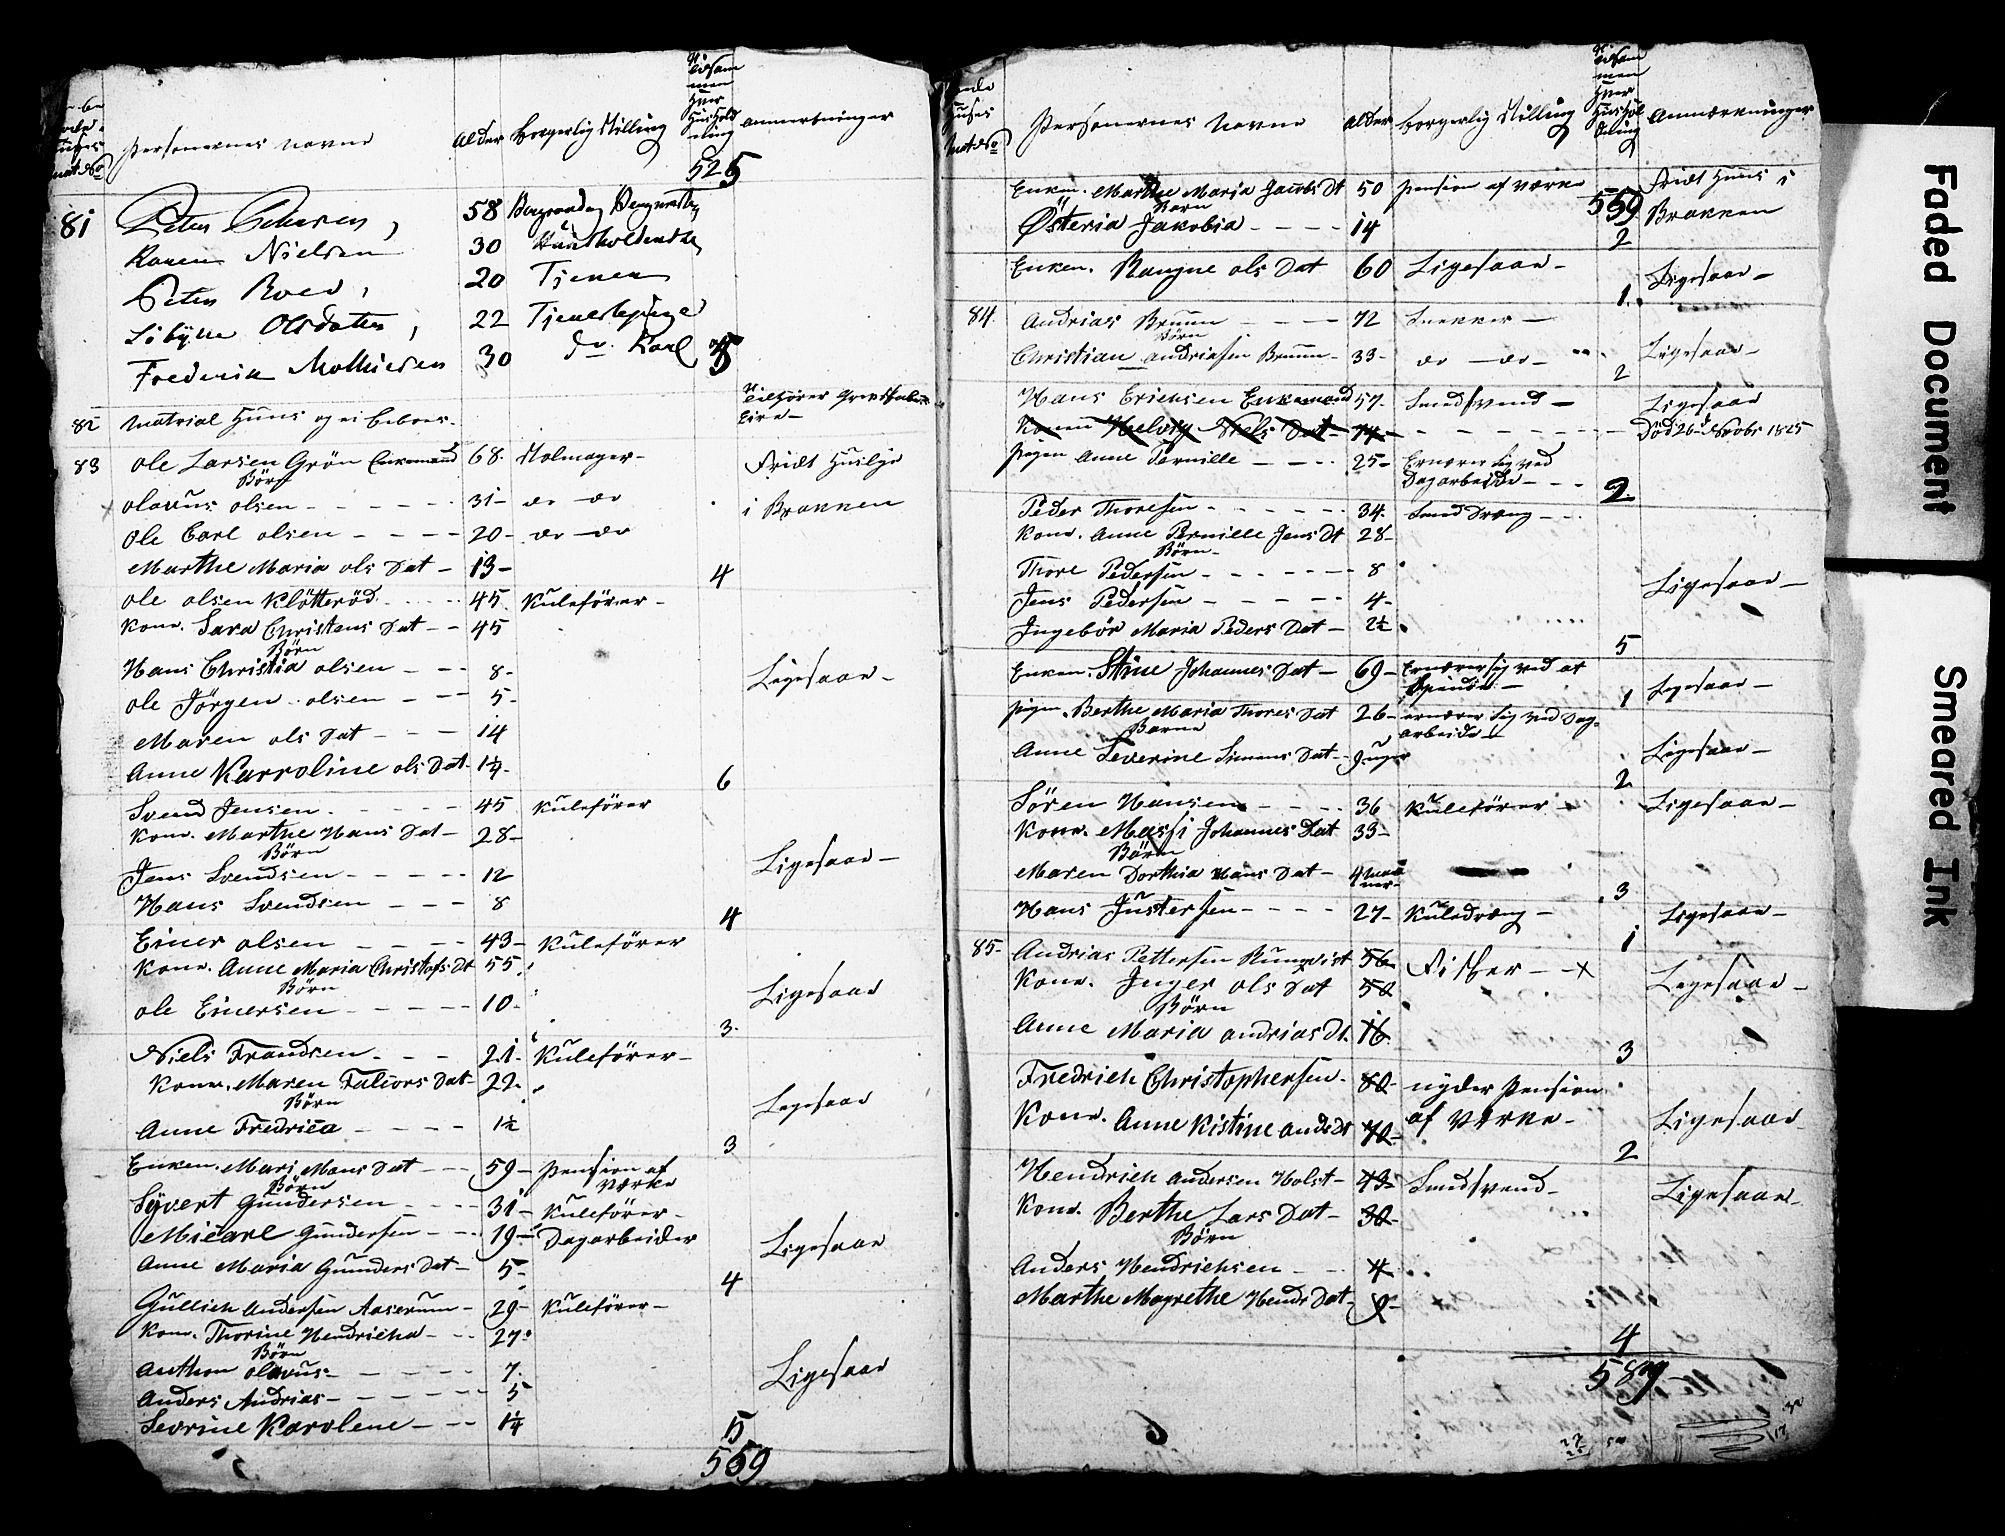 Personernes navne Alder borgerlig Stilling Tilsammen Hver Huusholdning anmerkninger
525
81 Peter Petersen, 58
Karen Nielsen 30 Huusholderske
Peter Roed, 20 Tjener
Sibylle Olsdatter, 22 Tjenestepige
Frederik Mathiesen 30 do Karl 5
82 Matrial Huus og ei beboes. Tilhører
83 Ole Larsen Grön Enkemand 68. Holmager- Friet Huslye
Börn
Olavus olsen - - - - 31- do do i Brakken
Ole Carl olsen - - - - 20- do - do
Marthe Maria ols Dat - 13- 4
Ole olsen Klötteröd - - - 45. Kulefører-
Kone. Sara Christens Dat - - 45
Börn
Hans Christia olsen - - - 8-
Ole Jörgen olsen - - - 5- Ligesaar-
Maren ols Dat - - - 14
Anne Karroline ols Dat. 1¼. 6
Svend Jensen. - - - - 45 Kulefører
Kone. Marthe Hans Dat - 28-
Börn
Jens Svendsen - - - - 12 Ligesaar-
Hans Svendsen - - - 8 4
Einer olsen - - - - 43- Kulefører
Kone. Anne Maria Christofs Dt 55.
Börn
Ole Einersen - - - - 10. Ligesaar
3.
Niels Frandsen - - - 21. Kulefører-
Kone. Maren Falcors Dat- 22.
Börn
Anne Fredrica - - - - 1½ Ligesaar
3
Enken. Mari Mons Dat - - 59- Pension af Værke
Börn
Syvert Gundersen - - - 31- Kulefører-
Micael Gundersen - - - 19- Dagarbeider
Anne Maria Gunders Dat- 5. Ligesaar
4
Gullich Andersen Aaserum - 29- Kulefører-
Kone. Thorine Hendricha - - 27.
Börn
Anthon olavus - - - - 7.
Anders Andrias - - - - - 5 Ligesaar
Sevrine Karolene - - - 1¼
5
559
Personernes navne Alder borgerlig Stilling Tilsammen Hver Huusholdning Anmærkninger
Enken. Marthe Maria Jacobs Dt 50 Pension af Værke 559 Friet Huus i
Barn
Østeria Jakobia - - - - 14 2 Brakken
Enken. Rangne ols Dat 60 Ligesaar- 1. Ligesaar-
84. Andrias Bruun - - - - 72 Snekker-
Börn
Christian Andriasen Bruun- 33- do - do- 2 Ligesaar-
Hans Ericksen Enkemand 57- Smedsvend- Ligesaar
Konen Helvig Niels Dat- 74- - - - - - - Död 26 Novbr 1825
Pigen Anne Pernille - - - 25- Ernærer Sig ved
Dagarbeide - - 2
Peder Thoresen - - - - - 34- Smed Dræng - -
Kone. Anne Pernille Jens Dt 28-
Börn-
Thore Pedersen - - - - - 8
Jens Pedersen - - - - 4- Ligesaar-
Ingebör Maria Peders Dat- 2½
5
Enken. Stine Johannes Dat- 69- Ernærer sig ved at
Spinde - 1 Ligesaar-
Pigen. Berthe Maria Thores Dat 26- ernærer Sig ved Dag-
Barne arbeide-
Anne Severine Simens Dat- 9 uger 2 Ligesaar-
Sören Hansen - - - - 36 Kulefører- Ligesaar-
Kone. Massi Johannes Dat 33-
Börn
Maren Dorthia Hans Dat- 4 Maaneer- 3
Hans Justersen - - - - 27- Kuledræng- 1 Ligesaar-
85. Andrias Pettersen Runqvist 56 Fisker - x
Kone. Inger ols Dat 50 Ligesaar-
Börn
Anne Maria Andrias Dt. 16 3
Fredrich Christophersen- 80- nyder Pension
Kone. Anne Kistine Ands Dt 70- af Værke- 2 Ligesaar-
Hendrich Andersen Holst- 43- Smedsvend- Ligesaar-
Kone. Berthe Lars Dat- 30-
Börn
Anders Hendrichsen - - - 4
Marthe Magrethe Hends Dat- 9-
4
589
Faded Document
Smeared Ink